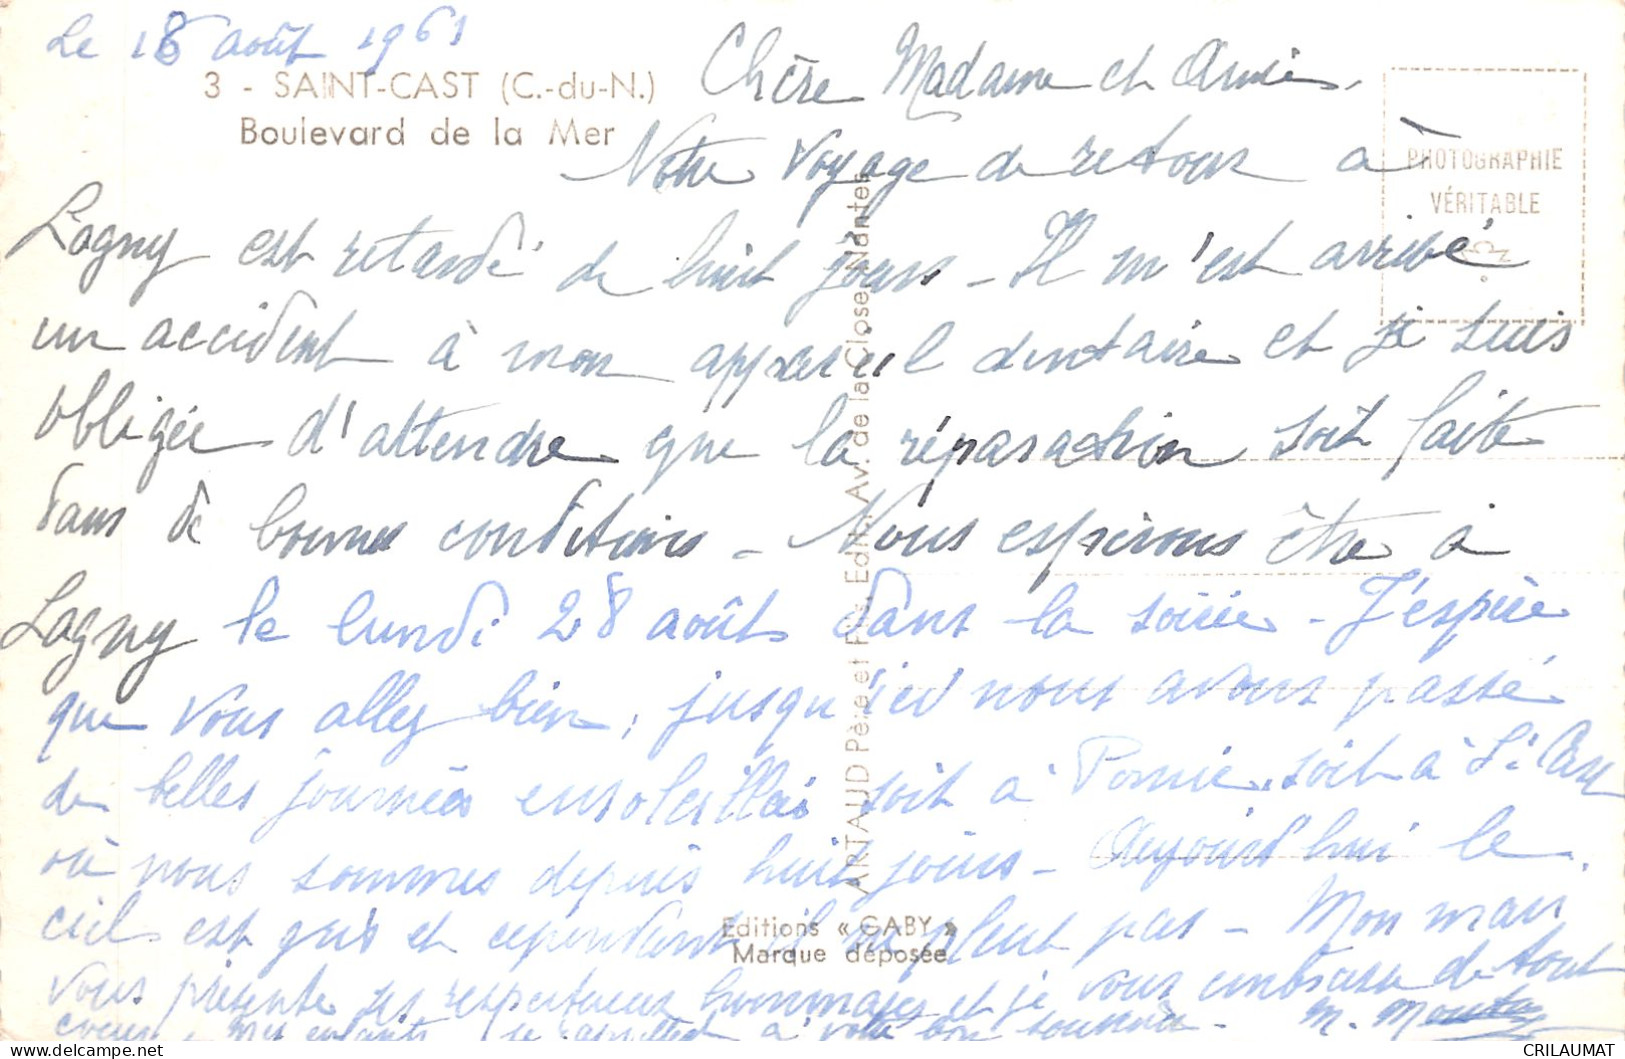 Le 18 août 1961
3 - SAINT-CAST (C.-du-N.)
Boulevard de la Mer
Chère Madame et Amie,
Notre voyage de retour à
Lagny est retardé de huit jours - Il m'est arrivé
un accident à mon appareil dentaire et je suis
obligée d'attendre que la réparation soit faite
dans de bonnes conditions - Nous espérons être à
Lagny le lundi 28 août dans la soirée - J'espère
que vous allez bien, jusqu'ici nous avons passé
de belles journées ensoleillées soit à Pornic, soit à St Cast
où nous sommes depuis huit jours - Aujourd'hui le
ciel est gris et cependant il ne pleut pas - Mon mari
vous présente ses respectueux hommages et je vous embrasse de tout
coeur - Mes enfants se rappellent à votre bon souvenir - M.
PHOTOGRAPHIE
VÉRITABLE
ARTAUD Père et Fils, Edit., Av. de la Close, Nantes
Editions « GABY »
Marque déposée
CRILAUMAT